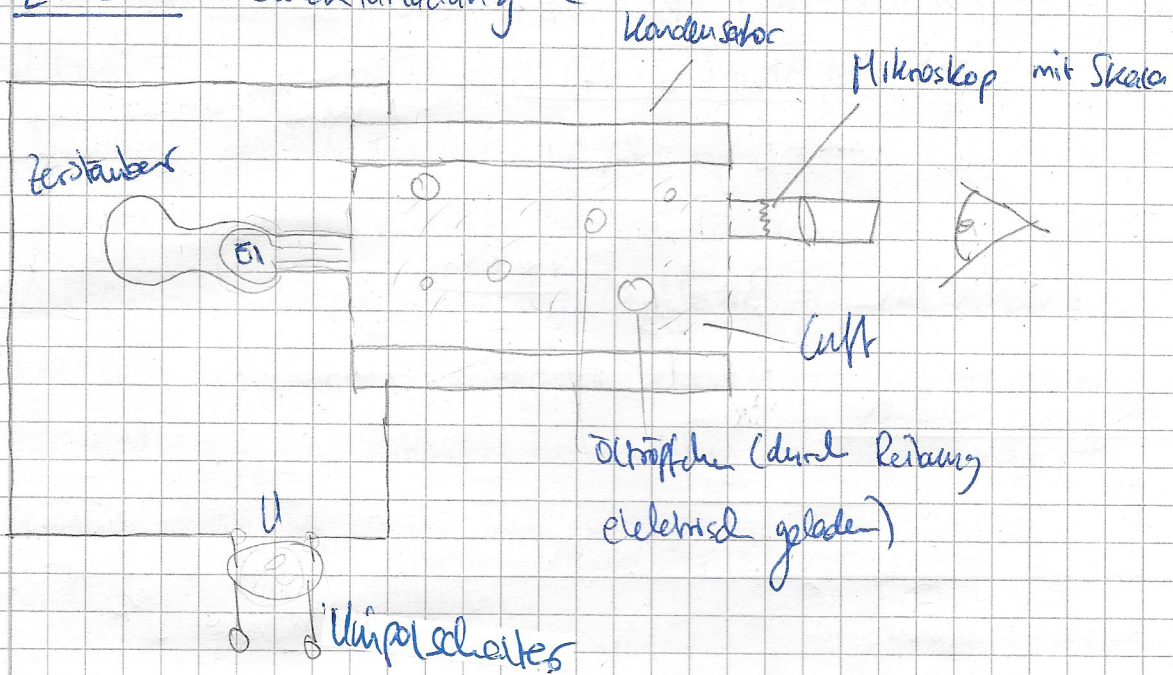 Kondensator
Mikroskop mit Skala
Zerstäuber
Öl
Luft
Öltröpfchen (durch Reibung
elektrisch geladen)
U
Umpolschalter